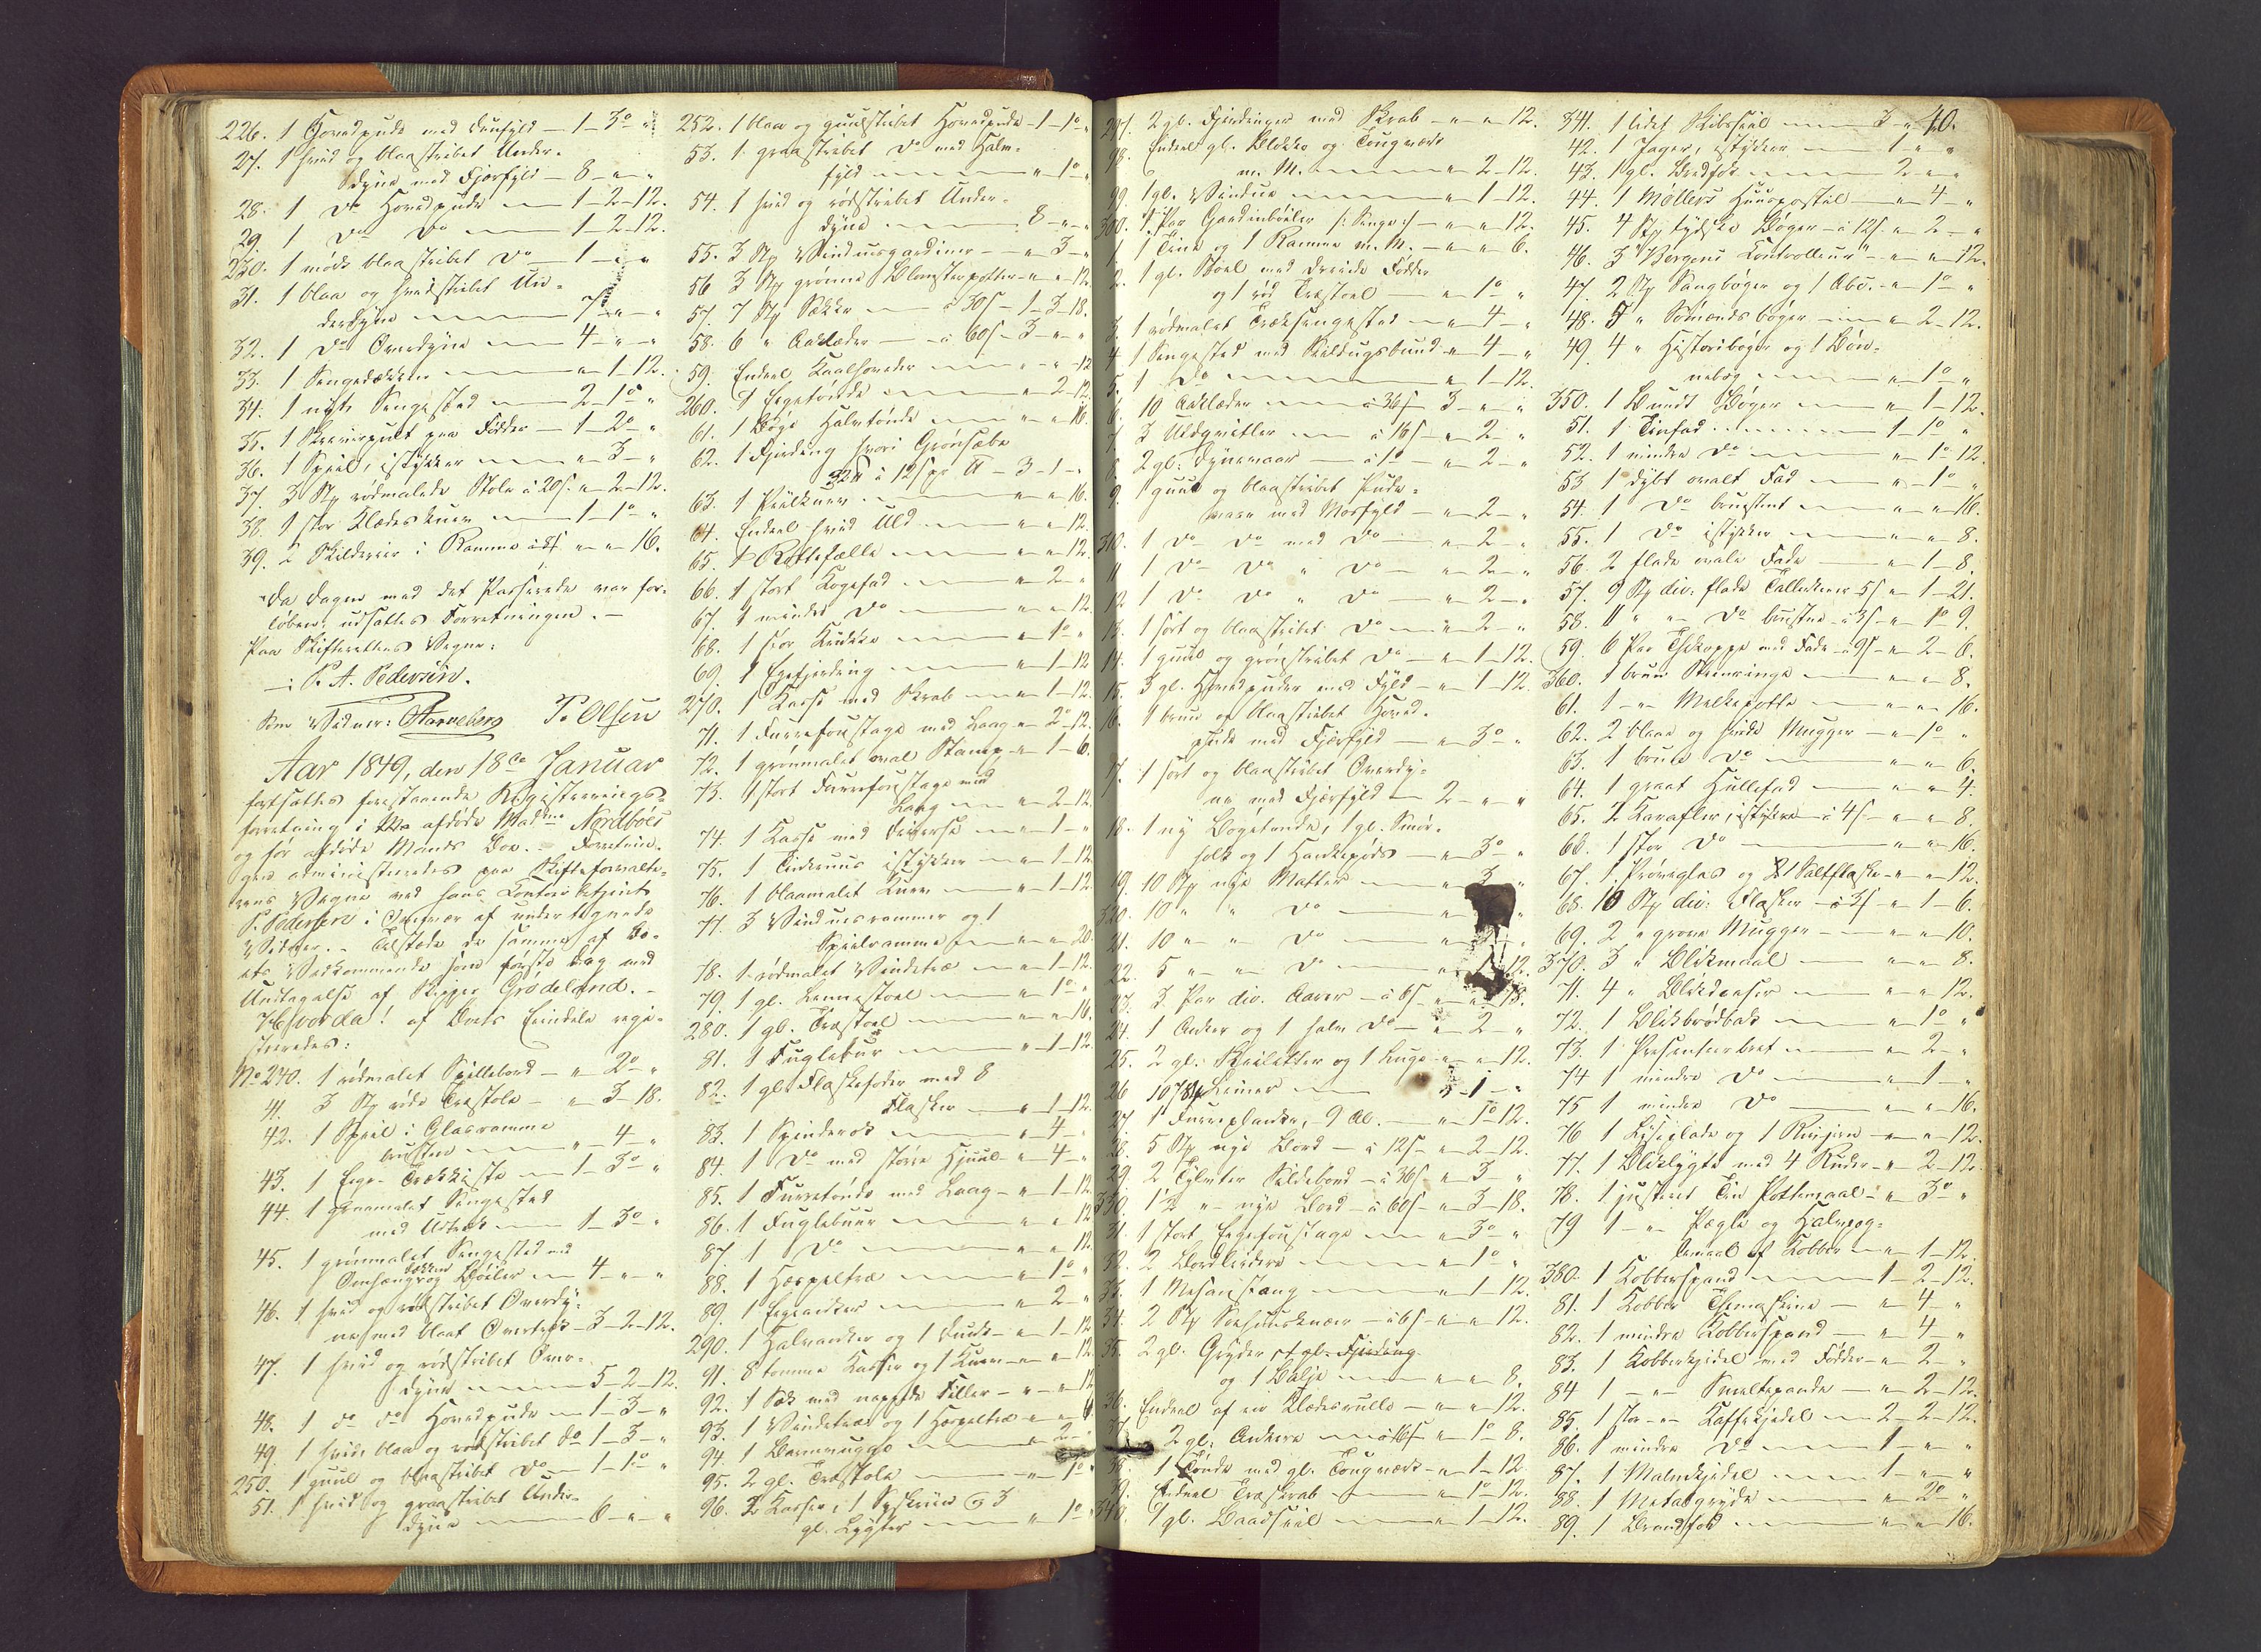 226. 1 Hovedpude med Duunfyld — 1 – 3 – "
27. 1 hvid og blaastribet Under-
dyne med Fjærfyld — 8 – " – "
28. 1 Do Hovedpude — 1 – 2 – 12.
29. 1 Do Do — 1 – 2 – 12.
230. 1 mørk blaastribet Do — 1 – " – "
31. 1 blaa og hvidstribet Un-
derdyne
32. 1 Do Overdyne — 4 – " – "
33. 1 Sengedækken — " – 1 – 12.
34. 1 nyt Sengested — 2 – 1 – "
35. 1 Skriverpult paa Fødder — 1 – 2 – "
36. 1 Speil, istykker — " – 3 – "
37. 3 Stk rødmalede Stole à 20 s. " – 2 – 12.
38. 1 stor Klædeskurv — 1 – 1 – "
39. 2 Skilderier i Ramme à 8 s. " – " – 16.
Da Dagen med det Passerede var for-
løben, udsattes Forretningen. —
Paa Skifterettens Vegne:
P. A. Pedersen.
Som Vidner: P. Olsen
Aar 1849, den 18de Januar
fortsattes forestaaende Registrerings-
forretning i afdøde Madme Nordbøes
og før afdøde Mands Boe. — Forretnin-
gen administreredes paa Skifteforvalte-
rens Vegne ved hans Contoirbetjent
P. Pedersen i Overvær af undertegnede
Vidner. — Tilstede de samme af Bo-
ets Vedkommende som første Dag med
Undtagelse af Skipper Grødeland. —
Hvorda! af Boets Eiendele regi-
streredes:
No 240. 1 rødmalet Spillebord — " – 2 – "
41. 3 Stk røde Træstole — " – 3 – 18.
42. 1 Speil i Glasramme
brusten — " – 4 – "
43. 1 Ege-Trækkiste — 1 – 3 – "
44. 1 grønmalet Sengested
med Udtræk — 1 – 3 – "
45. 1 grønmalet Sengested med
Omhæng og Bøiler — 4 – " – "
46. 1 hvid og rødstribet Overdy-
ne med blaat Overtræk — 3 – 2 – 12.
47. 1 hvid og rødstribet Over-
dyne — 5 – 2 – 12.
48. 1 do do Hovedpude — 1 – 3 – "
49. 1 hvid blaa og rødstribet do 1 – 3 – "
250. 1 guul og blaastribet Do — 1 – 1 – "
51. 1 hvid og graastribet Under-
dyne — 6 – " – "
252. 1 blaa og guulstribet Hovedpude — 1 – 1 – "
53. 1 graastribet Do med Halm-
fyld — " – 1 – "
54. 1 hvid og rødstribet Under-
dyne — 8 – " – "
55. 3 Stk Vinduesgardiner — " – 3 – "
56. 3 Stk grønne Blomsterpotter — " – " – 12.
57. 7 Stk Sække — à 30 s – 1 – 3 – 18.
58. 6 " Aaklæder — à 60 s – 3 – " – "
59. Endeel Kaalhoveder — " – " – 12
260. 1 Egetønde — " – 2 – 12.
61. 1 Bøge Halvtønde — " – " – 16.
62. 1 Fjerding hvori Grønsæbe
32 ℔ à 12 s pr ℔ — 3 – 1 – "
63. 1 — " – " – 16.
64. Endeel hvid Uld — " – " – 12.
65. 1 Rottefælle — " – " – 12.
66. 1 stort Kogefad — " – 2 – "
67. 1 mindre Do — " – " – 12.
68. 1 stor Krukke — " – 1 – "
69. 1 Egefjerding — " – 1 – 12
270. 1 Kasse med Skrab — " – 1 – 12.
71. 1 Furrefoustage med Laag — " – 2 – 12.
72. 1 grønmalet oval Stamp — " – 1 – 6.
73. 1 stort Furrefoustage med
Laag — " – 2 – 12.
74. 1 Kasse med Diverse — " – 1 – "
75. 1 istykker — " – 1 – 12
76. 1 blaamalet Kurv — " – 1 – 12.
77. 3 Vinduesrammer og 1
Speilramme — " – " – 20.
78. 1 rødmalet Vindetræ — " – 1 – 12.
79. 1 gl. Lænestoel — " – 1 – "
280. 1 gl. Træstoel — " – " – 16.
81. 1 Fuglebuur — " – 1 – 12
82. 1 gl. Flaskefoder med 8
Flasker — " – 1 – 12.
83. 1 Spinderok — " – 4 – "
84. 1 Do med større Hjuul — " – 4 – "
85. 1 Furretønde med Laag — " – 1 – 12
86. 1 Fuglebuur — " – " – 12
87. 1 Do — " – " – 12
88. 1 Hespeltræ — " – 1 – "
89. 1 Egeanker — " – 2 – "
290. 1 Halvanker og 1 Dunk — " – 1 – 12
91. 8 tomme Kasser og 1 Kurv — " – " – 12.
92. 1 Sæk med nappede Filler — " – " – 12
93. 1 Vindetræ og 1 Hespeltræ
94. 1 Barnevugge — " – 2 – "
95. 2 gl. Træstole — " – 1 – "
96. 2 Kasser, 1 Syskriin og 3
gl. Lygter — " – 1 – "
297. 2 gl. Fjerdinger med Skrab — " – " – 12.
98. Endeel gl. Blokke og Tougværk
m. M. — " – 2 – 12.
99. 1 gl. Vindue — " – 1 – 12.
300. 1 Par Gardinbøiler /: Senge :/ — " – " – 12.
1. 1 Tine og 1 Ramme m. M. — " – " – 6.
2. 1 gl. Stoel med dreiede Fødder
og 1 rød Træstoel — " – 1 – "
3. 1 rødmalet Træksengested — " – 4 – "
4. 1 Sengested med Seildugsbund — " – 4 – "
5. 1 Do — " – 1 – 12.
6. 10 Aaklæder — à 36 s 3 – " – "
7. 3 Uldqvitler — à 16 s – " – 2 – "
8. 2 gl. Dynevaar — à 1 – " – 2 – "
9. 1 guul og blaastribet Pude-
vaar med Mosfyld — " – 2 – "
310. 1 Do Do med Do — " – 2 – "
11 1 Do Do " Do — " – 2 – "
12 1 Do Do " Do — " – 2 – "
13. 1 sort og blaastribet Do — " – 2 – "
14. 1 guul og grønstribet Do — " – 1 – 12.
15. 3 gl. Hovedpuder med Fyld — " – 1 – 12.
16. 1 bruun og blaastribet Hoved-
pude med Fjærfyld — " – 3 – "
17. 1 sort og blaastribet Overdy-
ne med Fjærfyld — 2 – " – "
18. 1 ny Bøgetønde, 1 gl. Smør-
holk og 1 — " – 3 – "
19. 10 Stk nye Matter — " – 3 – "
320. 10 " " Do
21. 10 " " Do
22. 5 " " Do — " – 1 – 12.
23. 3 Par div. Aarer — à 6 s – " – " – 18.
24. 1 Anker og 1 halv Do — " – 2 – "
25. 2 gl. og 1 Luge — " – " – 12.
26 Riemer
27. 1 Furreplanke, 9 Al. — " – 1 – 12.
28. 5 Stk nye Bord — à 12 s – " – 2 – 12.
29. 2 Tylvter Sildebord — à 36 s – " – 3 – "
330. 1½ " nye Bord — à 60 s – " – 3 – 18.
31. 1 stort Egefoustage — " – 3 – "
32. 2 — " – 1 – "
33. 1 Mesanstang — " – 1 – 12.
34. 2 Stk — à 6 s – " – " – 12.
35. 2 gl. Gryder, 1 gl. Fjerding
og 1 Balje — " – " – 8.
36. Endeel af en Klæderulle — " – " – 12.
37. 2 gl. Ankere — à 16 s – " – 1 – 8.
38. 1 Tønde med gl. Tougværk — " – 1 – 12
39. Endeel Træskrab — " – 1 – 12.
340. 1 gl. Baadseil — " – 1 – 12.
40.
341. 1 lidet Skibsseil — 3 – " – "
42. 1 Jager, istykker — 1 – " – "
43. 1 gl. Bredfok — 2 – " – "
44. 1 Møllers Huuspostil — " – 4 – "
45. 4 Stk tydske Bøger — à 12 s. " – 2 – "
46. 3 Bergens Controlleur — " – " – 12.
47. 2 Stk Sangbøger og 1 Abc. — " – 1 – "
48. 5 " Sømands bøger — " – 2 – 12.
49. 4 " Historiebøger og 1 Bøn-
nebog — " – 1 – "
350. 1 Bundt Bøger — " – 1 – 12.
51. 1 Tinfad — 1 – 1 – "
52. 1 mindre Do — " – 1 – 12.
53 1 dybt ovalt Fad — " – 1 – "
54. 1 Do brustent — " – " – 16.
55. 1 Do istykker — " – " – 8.
56. 2 flade ovale Fade — " – 1 – 8.
57. 9 Stk div: flade Tallerkener 5 s – " – 1 – 21.
58. 11 " " Do brustne — à 3 s – " – 1 – 9.
59. 6 Par Thekopper med Fade — à 9 s – " – 2 – 6.
360. 1 bruun — " – " – 8.
61. 1 " Melkepotte — " – " – 16.
62. 2 blaae og hvide Mugger — " – 1 – "
63. 1 bruun Do — " – " – 6.
64. 1 graat Hullefad — " – " – 4.
65. 2 Karafler, istykker — à 4 s – " – " – 8.
66. 1 stor Do — " – " – 16.
67. 1 Prøveglas og 1 Saltflaske — " – " – 12.
68. 10 Stk div: Flasker — à 3 s – " – 1 – 6.
69. 2 " grove Mugger — " – " – 10.
370. 3 " Blikmaal — " – " – 8.
71. 4 " Blikdaaser — " – " – 12.
72. 1 Blikbrødbak — " – 1 – "
73. 1 Presenteerbret — " – 2 – "
74 1 mindre Do — " – 1 – "
75 1 mindre Do — " – " – 16.
76 1 Lyseplade og 1 Rivjern — " – " – 12.
77. 1 Bliklygte med 4 Ruder — " – 2 – 12.
78. 1 justeret Tin Pottemaal — " – 3 – "
79 1 " Pægle og Halvpæg-
lemaal af Kobber — " – 1 – 12.
380. 1 Kobberspand — 1 – 2 – 12.
81. 1 Kobber Themaskine — " – 4 – "
82. 1 mindre Kobberspand — " – 4 – "
83. 1 Kobberkjedel med Fødder — " – 2 – "
84 1 " Smeltepande — " – 2 – 12.
85. 1 stor " Kaffekjedel — 2 – 2 – 12.
86. 1 mindre Do — 1 – " – "
87. 1 Malmkjedel — 1 – " – "
88. 1 Metalgryde — " – 2 – "
89. 1 Brandfod — " – " – 16.